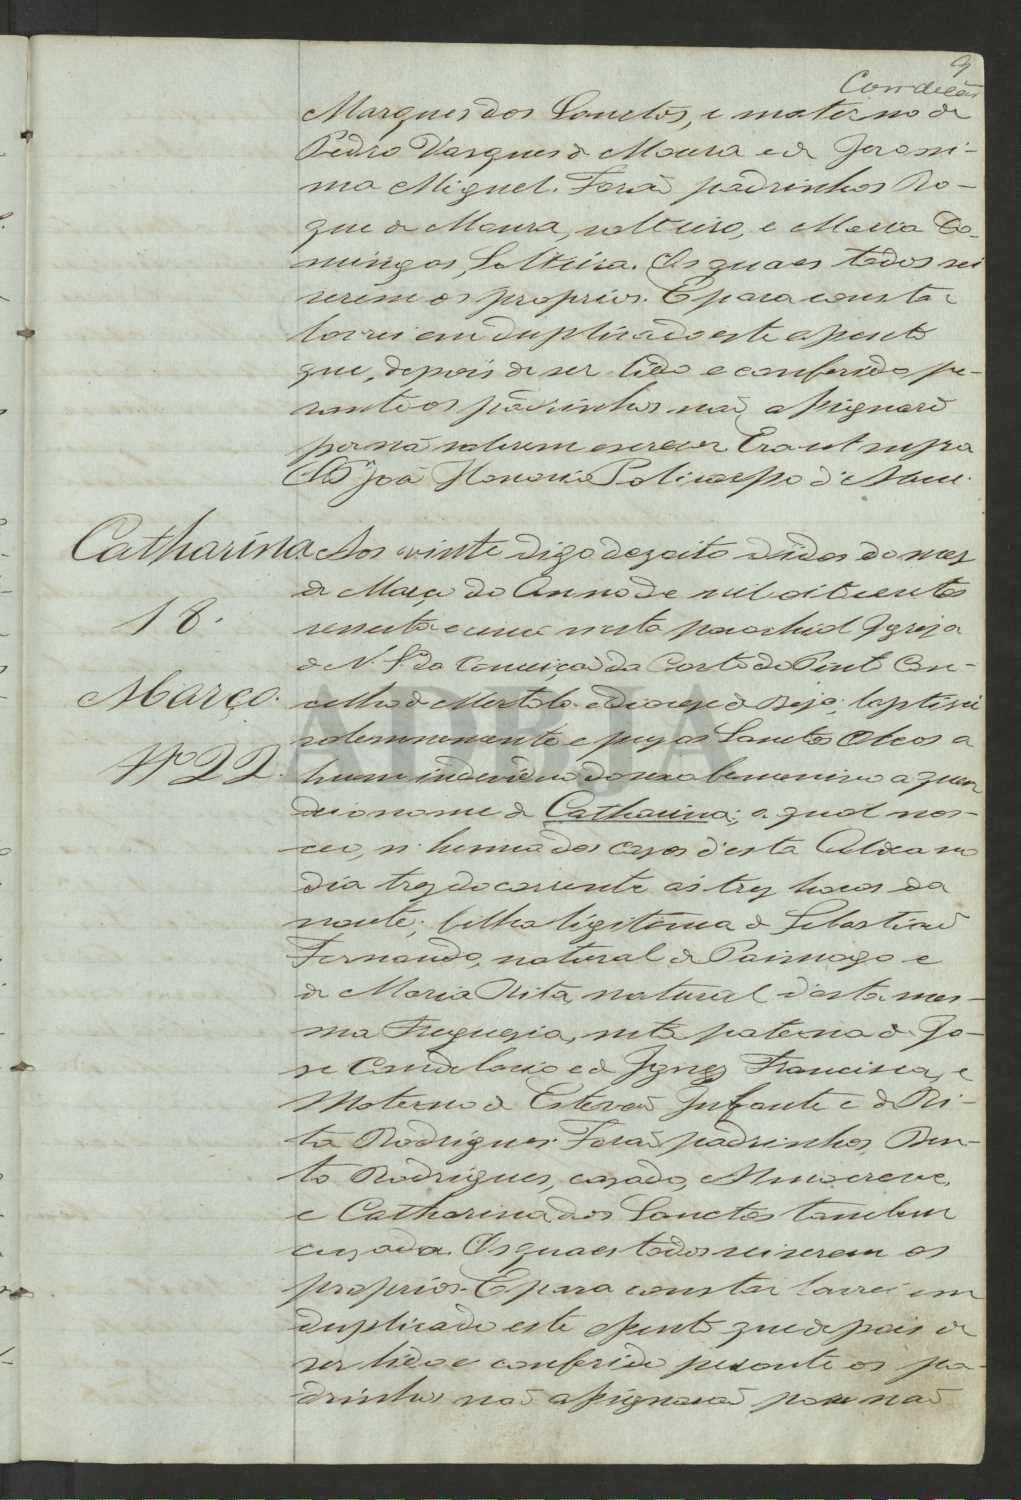 9
Marques dos Sanctos, e materno de
Pedro Vasques de Moura e de Jeroni-
ma Miguel. Forão padrinhos Ro-
que de Moura, solteiro, e Maria Do-
mingos, Solteira. Os quaes todos sei
serem os proprios. E para constar
lavrei em duplicado este aſsento
que, depois de ser lido e conferido pe-
rante os padrinhos não aſsignarão
por não saberem escrever Era ut supra
João Honorio Policarpo d'
Catharina. Aos vinte digo dezoito dias do mez
de Março do Anno de mil oitocentos
18. sessenta e cinco nesta parochial Igreja
de N. S. da Conceição da Corte do Pinto Con-
Março. celho de Mertola e diocese de Beja, baptisei
solemnemente e puz os Sanctos Oleos a
Nº 22 hum individuo do sexo femenino a quem
dei o nome de Catharina; a qual nas-
ceo, n'huma das cazas d'esta Aldea no
dia trez do corrente ás trez horas da
noute; filha ligitima de Sebastião
Fernando, natural de Paimogo e
de Maria Rita, natural d'esta mes-
ma Freguezia, neta paterna de Jo-
se Candelario e de Ignez Francisca, e
Materno de Estevão Infante e de Ri-
ta Rodrigues. Forão padrinhos, Ben-
to Rodrigues, cazado, Almocreve,
e Catharina dos Sanctos tambem
cazada. Os quaes todos sei serem os
proprios. E para constar lavrei em
duplicado este aſsento que depois de
ser lido e conferido perante os pa-
drinhos não aſsignarão por não
ADBJA